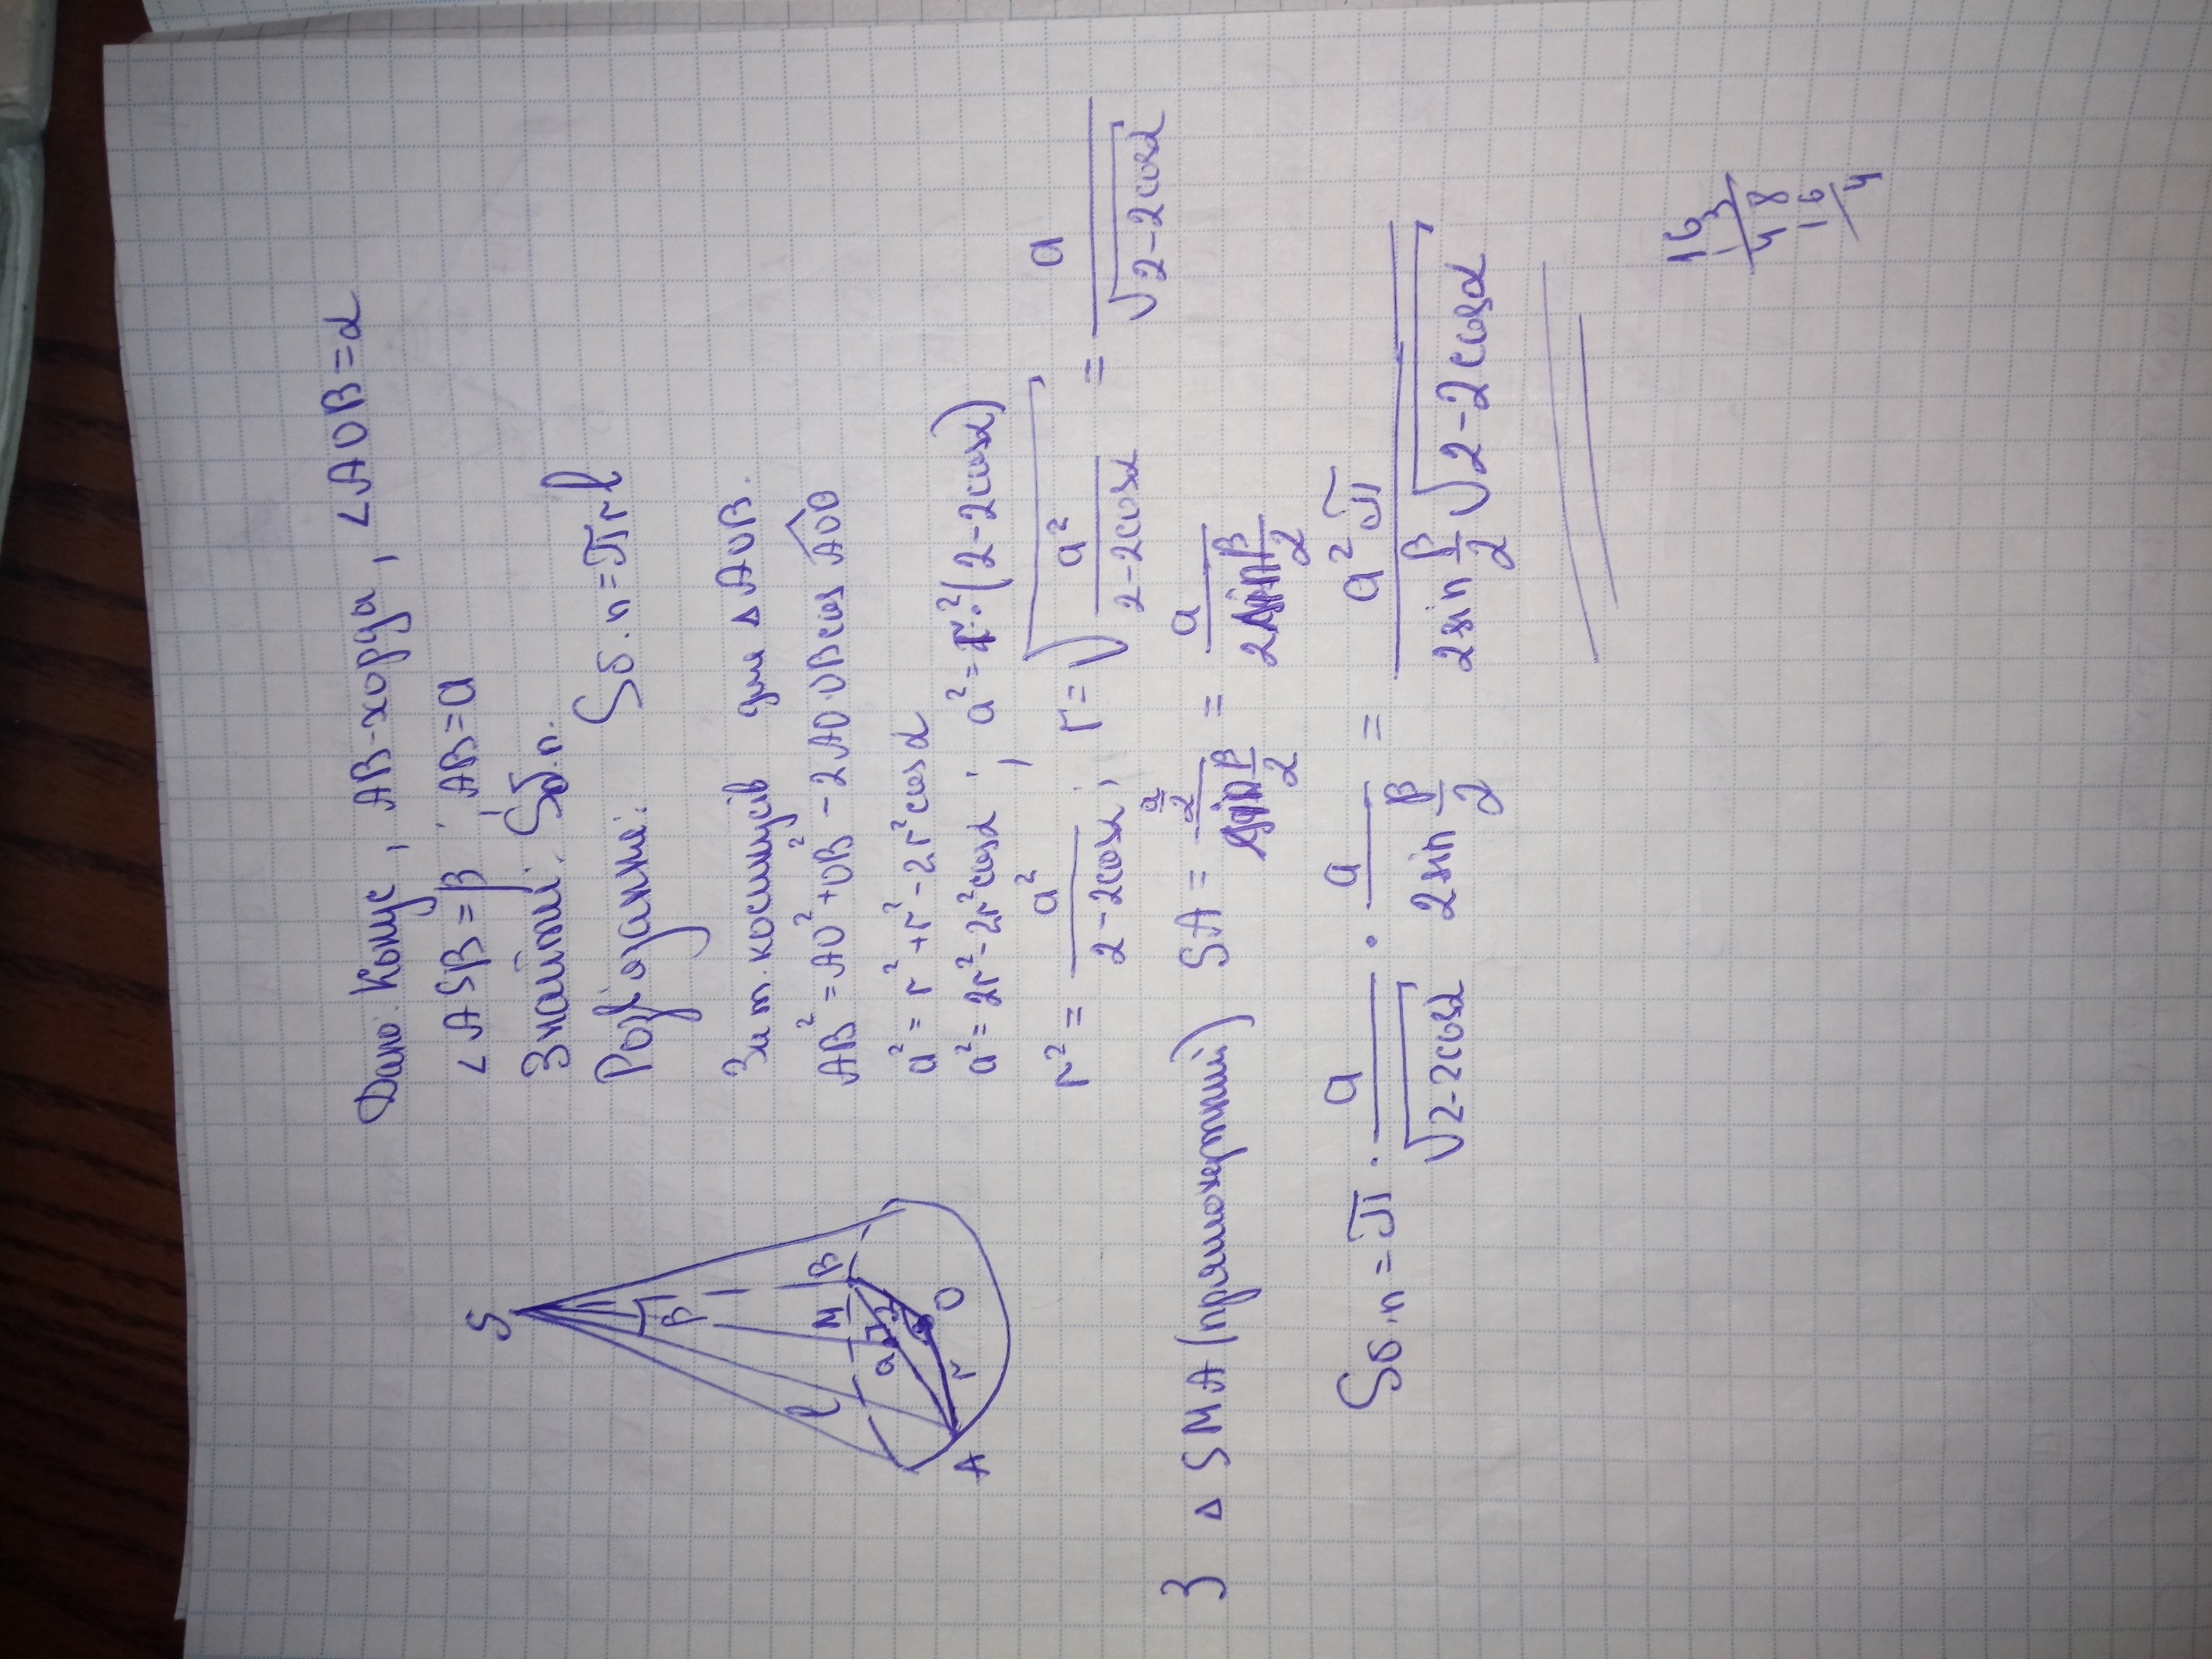 Дано: Конус, AB-хорда, ∠AOB=α
∠ASB=β, AB=a
Знайти: Sб.п.
Розв'язання: Sб.п=πrl
За т. косинусів для △AOB.
AB²=AO²+OB²-2AO·OBcos AOB
a²=r²+r²-2r²cosα
a²=2r²-2r²cosα; a²=r²·(2-2cosα)
r²=a²/(2-2cosα); r=√(a²/(2-2cosα))=a/√(2-2cosα)
З △SMA (прямокутний) SA=(a/2)/(sin β/2)=a/(2sin β/2)
Sб.п=π·a/√(2-2cosα)·a/(2sin β/2)=a²π/(2sin β/2 √(2-2cosα))
S
β
l
M
B
a
r
O
A
16
3
48
16
4